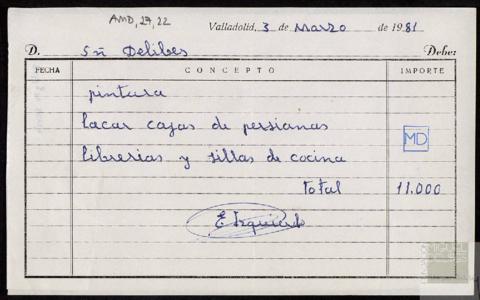 AMD, 27, 22
Valladolid, 3 de Marzo de 1981
D. Sñ Delibes Debe:
FECHA CONCEPTO IMPORTE
pintura
lacar cajas de persianas
MD
librerias y sillas de cocina
total 11.000
E Izquierdo